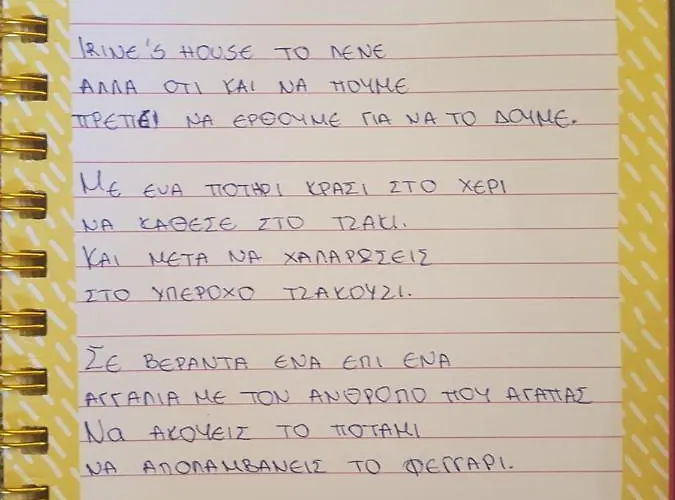 IRINE'S HOUSE ΤΟ ΛΕΝΕ
ΑΛΛΑ ΟΤΙ ΚΑΙ ΝΑ ΠΟΥΜΕ
ΠΡΕΠΕΙ ΝΑ ΕΡΘΟΥΜΕ ΓΙΑ ΝΑ ΤΟ ΔΟΥΜΕ.
ΜΕ ΕΝΑ ΠΟΤΗΡΙ ΚΡΑΣΙ ΣΤΟ ΧΕΡΙ
ΝΑ ΚΑΘΕΣΕ ΣΤΟ ΤΖΑΚΙ.
ΚΑΙ ΜΕΤΑ ΝΑ ΧΑΛΑΡΩΣΕΙΣ
ΣΤΟ ΥΠΕΡΟΧΟ ΤΖΑΚΟΥΖΙ.
ΣΕ ΒΕΡΑΝΤΑ ΕΝΑ ΕΠΙ ΕΝΑ
ΑΓΓΑΛΙΑ ΜΕ ΤΟΝ ΑΝΘΡΟΠΟ ΠΟΥ ΑΓΑΠΑΣ
Να ΑΚΟΥΕΙΣ ΤΟ ΠΟΤΑΜΙ
ΝΑ ΑΠΟΛΑΜΒΑΝΕΙΣ ΤΟ ΦΕΓΓΑΡΙ.